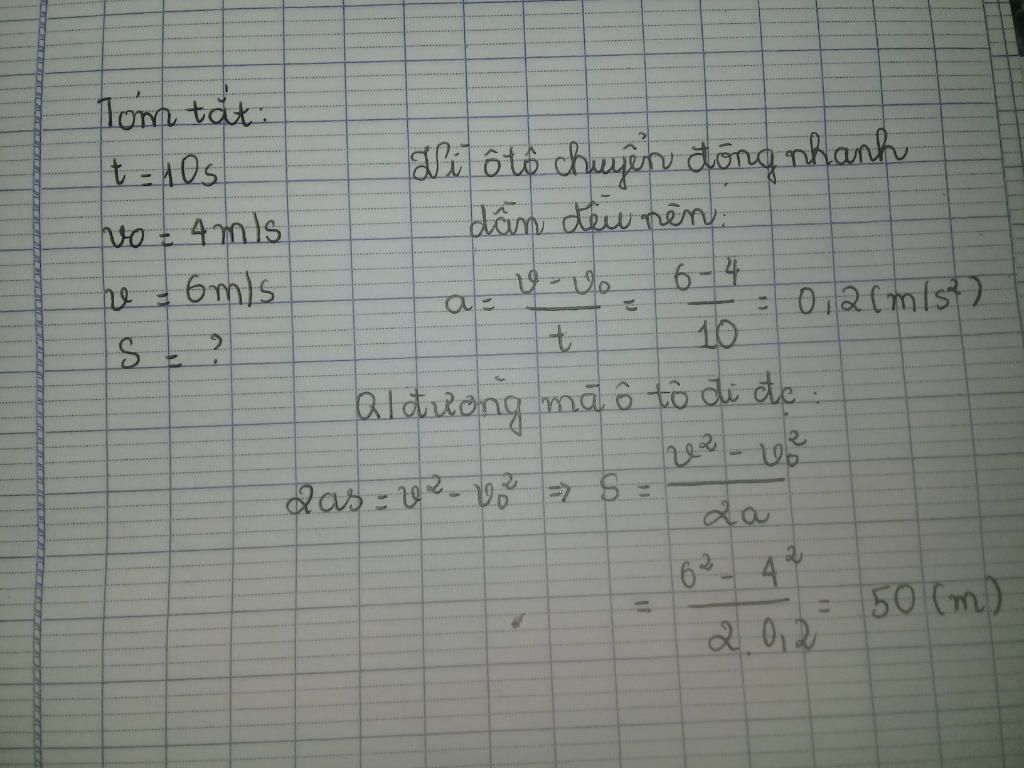 Tóm tắt:
t = 10s
v0 = 4m/s
v = 6m/s
S = ?
Vì ôtô chuyển động nhanh
dần đều nên:
a = (v - v₀)/t = (6 - 4)/10 = 0,2 (m/s²)
Qđường mà ô tô đi đc:
2as = v² - v₀² => S = (v² - v₀²)/2a
= (6² - 4²)/(2.0,2) = 50 (m)